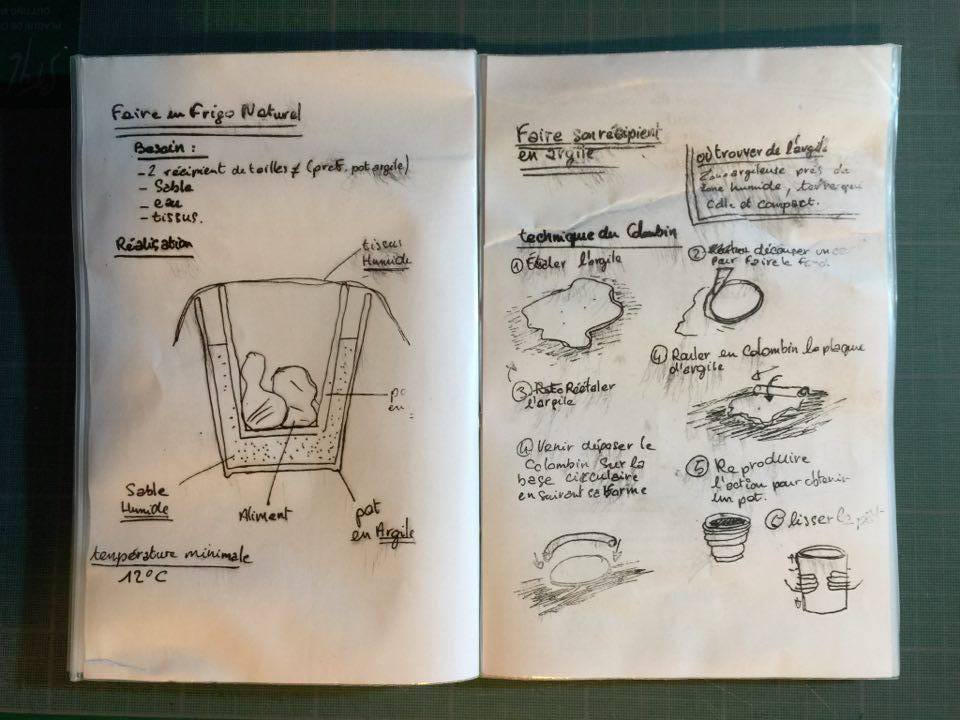 Faire un Frigo Naturel
Besoin :
- 2 récipient de tailles ≠ (préf. pot argile)
- Sable
- eau
- tissus.
Réalisation
tissus
Humide
po
en
Sable
Humide
Aliment
pot
en Argile
température minimale
12°C
Faire son récipient
en argile
où trouver de l'argile
Zone argileuse près de
zone humide, terre qui
colle et compact.
technique du Colombin
① Étaler l'argile
② découper un
pour faire le fond
③ Réétaler
l'argile
④ Rouler en Colombin la plaque
d'argile
④ Venir déposer le
Colombin sur la
base circulaire
en suivant sa forme
⑤ Reproduire
l'action pour obtenir
un pot.
⑥ lisser le pot